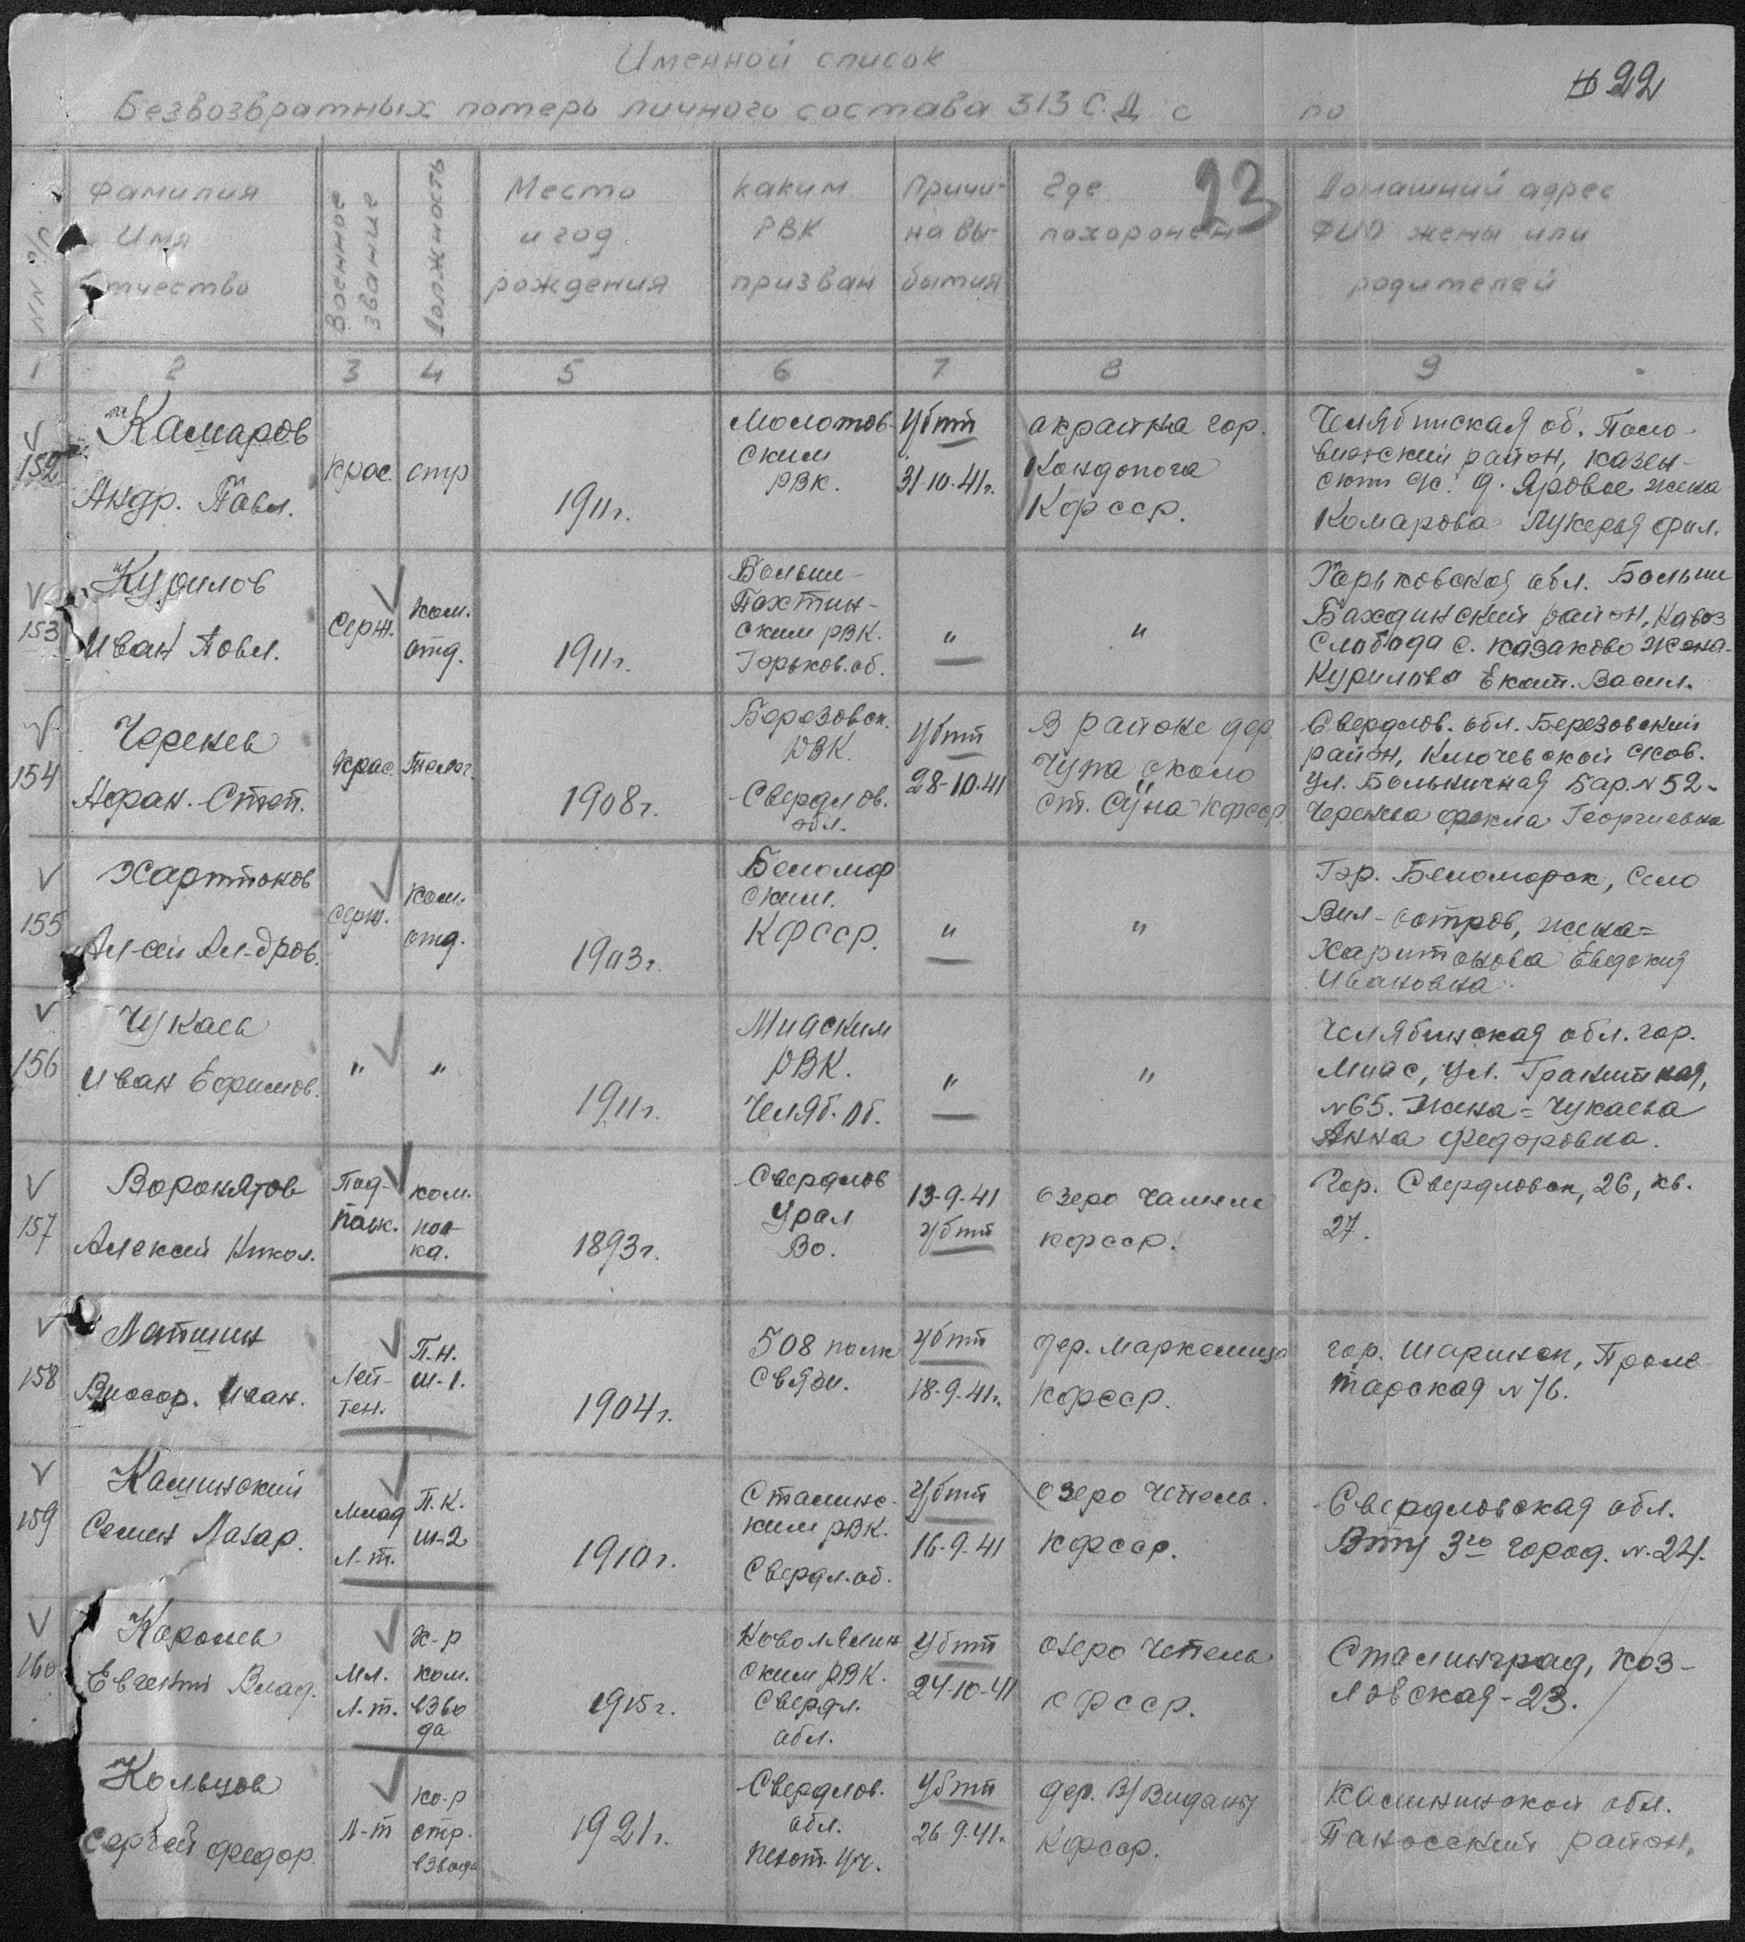 Именной список
№ 22
Безвозвратных потерь личного состава 313 С.Д. с по
23
NN п/п
Фамилия Имя Отчество
Военное звание
Должность
Место и год рождения
Каким РВК призван
Причина выбытия
Где похоронен
Домашний адрес ФИО жены или родителей
1 2 3 4 5 6 7 8 9
152
Камаров
Андр. Павл.
Крас. стр
1911г.
Молотов-
ским
РВК.
Убит
31-10-41г.
окраина гор.
Кондопога
Кфсср.
Челябинская об. Поло-
винский район, Казен-
ский с/с. д. Яровое жена
Комарова Лукерья Фил.
153
Курилов
Иван Павл.
Серж. Ком.
отд.
1911г.
Больше-
Пахтин-
ским РВК.
Горьков. об.
"
"
Горьковская обл. Больше
Бахдинский район,
Слобода с. Казаково жена-
Курилова Екат. Васил.
154
Черенев
Афан. Степ.
Крас. Телег.
1908г.
Березовск.
РВК.
Свердлов.
обл.
Убит
28-10-41
В районе дер
Чупа около
ст. Суна Кфсср.
Свердлов. обл. Березовский
район, Ключевской сов.
ул. Больничная Бар. N 52-
Черенева Фекла Георгиевна
155
Харитонов
Ал-сей Ал-дров.
Серж. Ком.
отд.
1903г.
Беломор
ским.
КФССР.
"
"
Гор. Беломорск, село
Выл-остров, жена=
Харитонова Евдокия
Ивановна.
156
Чукаев
Иван Ефимов.
" "
1911г.
Миаским
РВК.
Челяб. Об.
"
"
Челябинская обл. гор.
Миас, ул. Гранитная,
N65. Жена = Чукаева
Анна Федоровна.
157
Воронятов
Алексей Никол.
Под-
полк.
ком.
пол-
ка.
1893г.
Свердлов
Урал
Во.
13-9-41
убит
озеро Чалмы
кфсср.
Гор. Свердловск, 26, кв.
27.
158
Латинин
Виссар. Иван.
Лей-
тен.
П.Н.
Ш-1.
1904г.
508 полк
связи.
убит
18-9-41г.
дер. Маркелица
Кфсср.
гор. Шаринск, Проле
тарская N 76.
159
Калинский
Семен Лазар.
Млад
Л-т.
П.К.
Ш-2
1910г.
Сталинс-
ким РВК.
Свердл. об.
Убит
16-9-41
озеро Чепель.
Кфсср.
Свердловская обл.
Втуз 3го город. N-24.
160
Королев
Евгений Влад.
Мл.
Л-т.
К-р
ком.
взво
да
1915г.
Новолялин
ским РВК.
Свердл.
обл.
Убит
24-10-41
озеро Чепель
кфсср.
Сталинград, Коз-
ловская-23.
Кольцов
Сергей Федор.
Л-т
Ко-р
стр.
взвода
1921г.
Свердлов.
обл.
пехот. Уч.
Убит
26.9.41г.
дер. В/Виданы
Кфсср.
Калининской обл.
район.